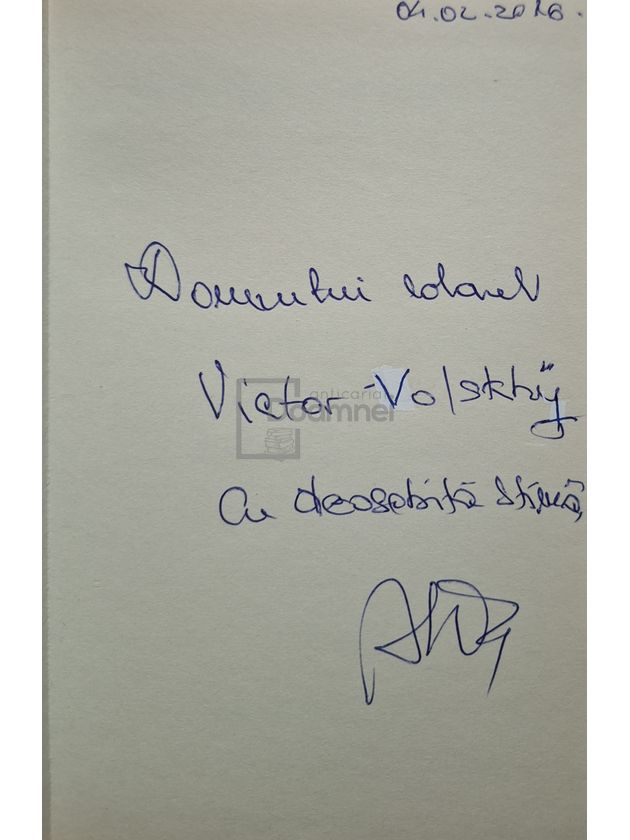 04.02.2016.
Domnului colonel
Victor Volskhij
anticariat
Doamnei
Cu deosebită stimă,